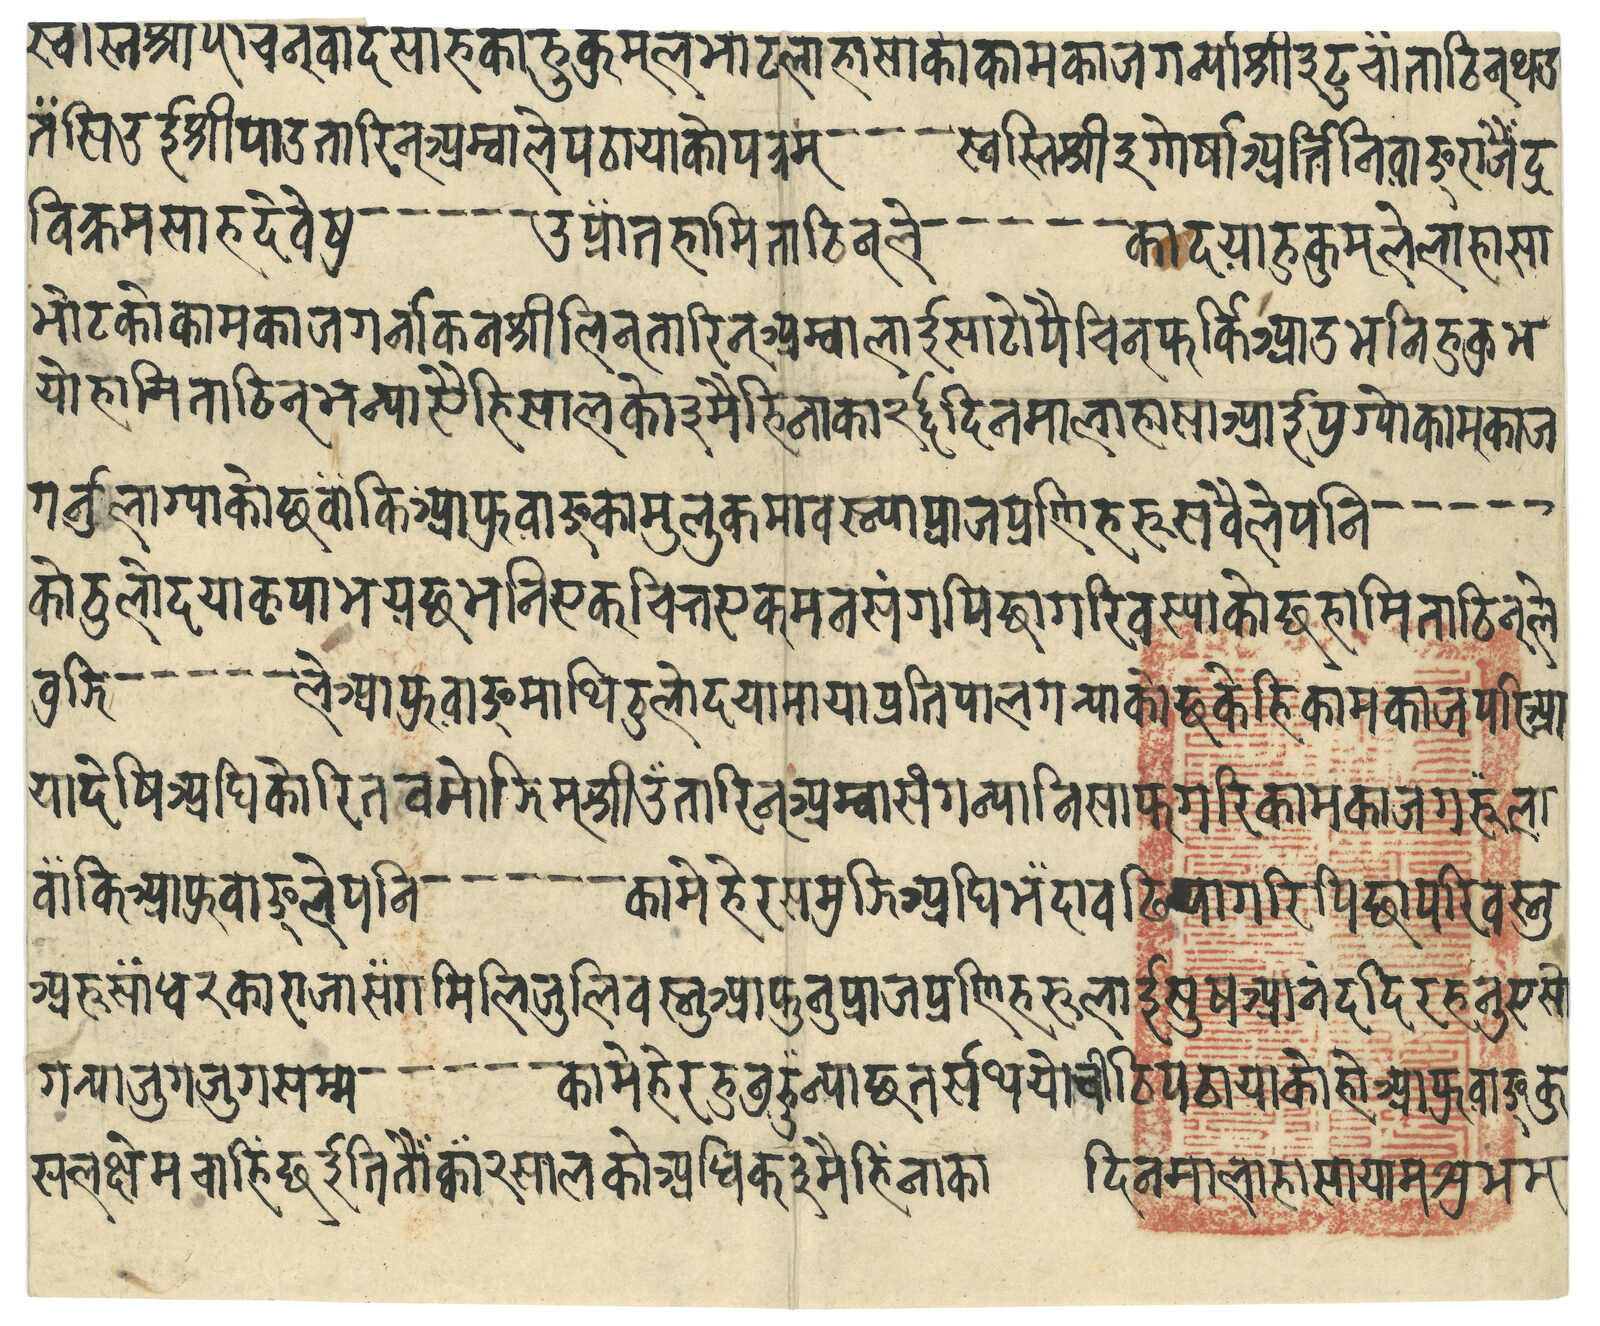 स्वास्तश्रीपाचन्वादसाहकाहुकुमलभोटलाहासाकाकामकाजगर्न्याश्री३टुचांताठिन्थउ
तंसिउईश्रीपाउतारिन्अम्वालेपठायाकोपत्रम् ----- स्वस्तिश्री३गोर्षाअर्त्तिनिवाङ्राजैंद्र
विक्रमसाहदेवेषु ------ उप्रांतहामिताठिन्ले ------ कादयाहुकुमलेलाहासा
भोटकोकामकाजगर्नाकनश्रीलिन्तारिन्अम्वालाईसाटोपैचिन्फर्किआउभनिहुकुभ
योहामिताठिन्भन्यायैहिसालको३मैहिनाका२र्द्ददिनमालाहासाआईपुग्योकाम्काज
गर्नुलाग्याकोछुवांकिआफ्रवाङ्कामुलुकमावस्न्याप्राजप्रणिहरूसवैलेपनि -----
कोठुलोदयाकृपाभयछभनियेकचित्तयेक्मनसंगपिछागरिवस्याकोछहामिताठिन्ले
वुझि ------ लेआफ्रवाङ्माथिठुलोदयामायाप्रतिपालगन्याकोछकेहिकामकाजपरिआ
यादेषिअघिकोरितवमोझिम्श्रीउंतारिन्अम्वासंगन्यानिसाफ्गरिकामकाजगरूंला
वांकिआफ्रवाङ्लेपनि ------ कामेहेरसमुझिअघिभंदावढियागरिपिछापरिवस्नु
अरूसांध्वरकाराजासंगमिलिजुलिवस्नुआफुनुप्राजप्रणिहरूलाईसुषआनंददिरहनुयेसो
गन्याजुगजुगसम्म ------ कामेहेरहुनुहुंन्याछतर्सथयोचीठिपठायाकोहोआफ्रवाङ्कु
सलक्षेमचाहिंछईतितौंक्वां२सालकोअधिक३मैहिंनाका दिनमालाहासायामशुभम्